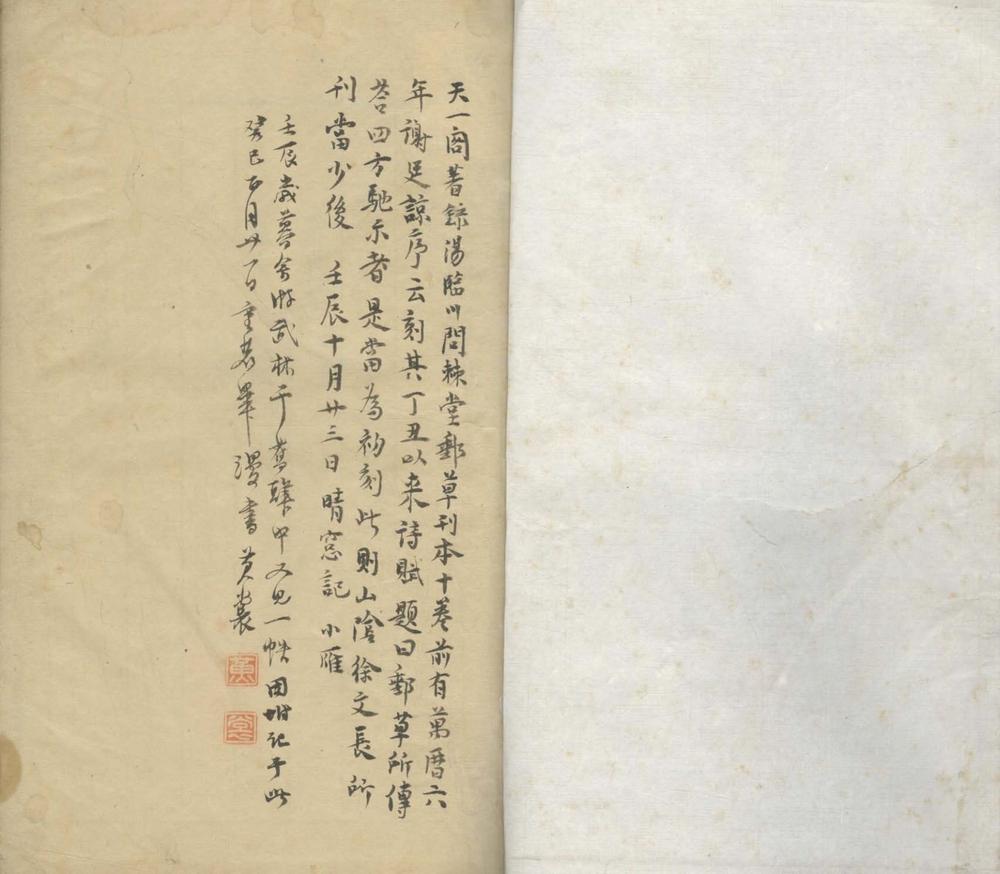 天一閣著錄湯臨川問棘堂郵草刊本十卷前有萬曆六
年謝廷諒序云刻其丁丑以來詩賦題曰郵草所傳
荅四方馳示者是當為初刻此則山陰徐文長所
刊當少後 壬辰十月廿三日晴窓記 小雁
壬辰歲暮余游武林于舊肆中又見一帙因坿記于此
癸巳正月廿一日重裝畢漫書 黃裳
黃
裳